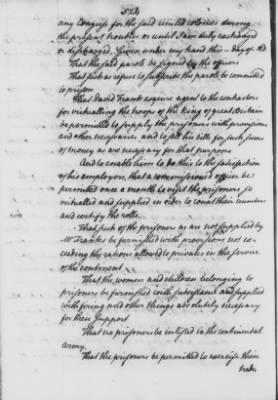 any Congress for the said united colonies during
the present troubles or until I am duly exchanged
or discharged. Given under my hand this — day of AD
That the said parole be signed by the officers
That such as refuse to subscribe the parole be committed
to prison
That David Franks esquire agent to the contractors
for victualling the troops of the king of great Britain
be permitted to supply the prisoners with provisions
and other necessaries and to sell his bills for such sums
of money as are necessary for that purpose
And to enable him to do this to the satisfaction
of his employers, that a commissioned officer be
permitted once a month to visit the prisoners so
victualled and supplied in order to count their number
and certify the rolls.
That such of the prisoners as are not supplied by
Mr Franks be furnished with provisions not ex-
ceeding the rations allowed to privates in the service
of the continent
That the women and children belonging to
prisoners be furnished with subsistence and supplied
with firing and other things absolutely necessary
for their support
That no prisoners be enlisted in the continental
army.
That the prisoners be permitted to exercise their
trades